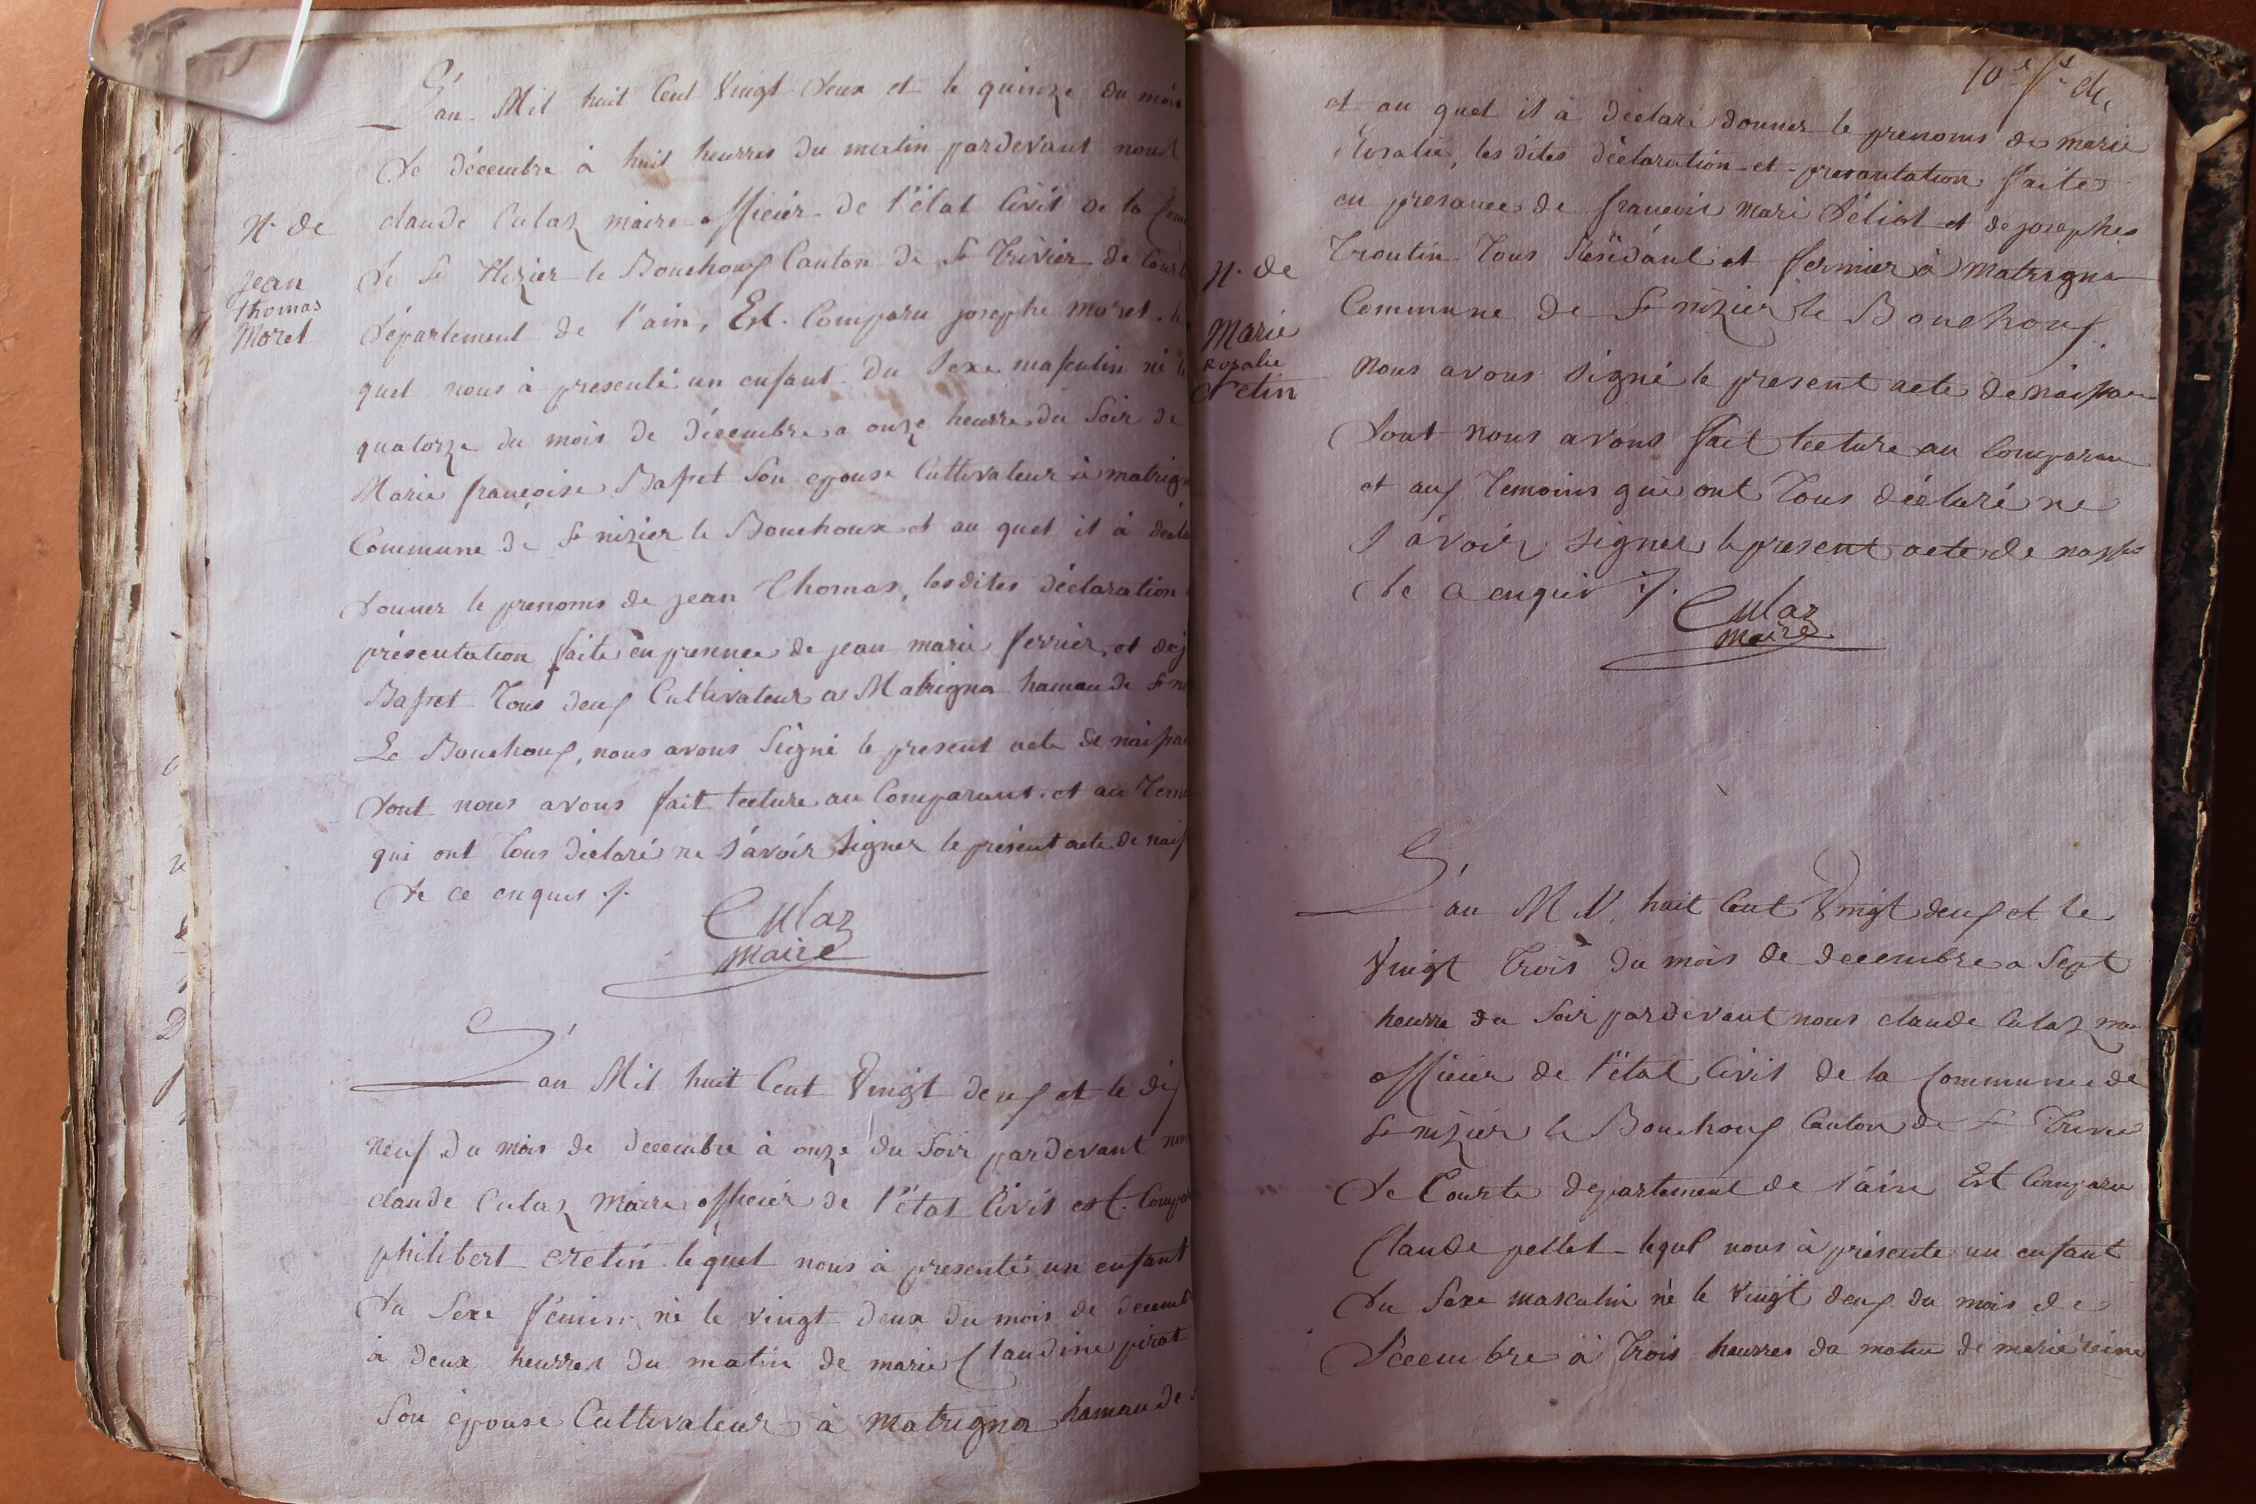 L'an Mil huit Cent Vingt deux et le quinze du mois
de décembre à huit heurres du matin pardevant nous
claude Culaz maire officier de l'état Civil de la
N. de
Jean
thomas
Moret
de St Nizier le Bouchoux Canton de St Trivier de
département de l'ain, Est Comparu josephe moret. le
quel nous à presenté un enfant du Sexe masculin né le
quatorze du mois de décembre a onze heurre du Soir de
Marie françoise Basset Son epouse Cultivateur à
Commune de St nizier le Bouchoux et au quel il à
donner le prenoms de jean Thomas, les dites déclaration
présentation faite en presence de jean marie ferrier, et de j
Basset Tous deux Cultivateur a Matrigna hamau de St
Le Bouchoux, nous avons Signé le present acte de
dont nous avons fait lecture au Comparant et au
qui ont tous déclaré ne s'avoir signer le présent acte de
de ce enquis ./.
Culaz
maire
L'an Mil huit Cent Vingt deux et le dix
neuf du mois de decembre à onze du Soir pardevant
claude Culaz Maire officier de l'état Civil est
philibert cretin lequel nous à presenté un enfant
du Sexe féminin né le vingt deux du mois de
à deux heurres du matin de marie Claudine pirat
Son épouse Cultivateur à Matrigna hamau de
et au quel il à déclaré donner le prenoms de marie
Rosalie, les dites déclaration et presantation faite
en presance de francois Mari Déliat et de josephe
N. de
Marie
Rosalie
Cretin
Troutin Tous Résidant et fermier à Matrigna
Commune de St nizier le Bouchoux
Nous avons signé le present acte de
dont nous avons fait lecture au
et aux Temoins qui ont Tous déclaré ne
s'avoir signer le present acte de
de a enquis ./.
Culaz
maire
L'an Mil huit Cent Vingt deux et le
Vingt Trois du mois de decembre a Sept
heurre du Soir pardevant nous claude Culaz
officier de l'état Civil de la Commune de
St nizier le Bouchoux Canton de St
de Courte departement de l'ain Est Comparu
Claude pellet lequel nous à présenté un enfant
du Sexe masculin né le Vingt deux du mois de
Décembre à Trois heurres du matin de marie reine